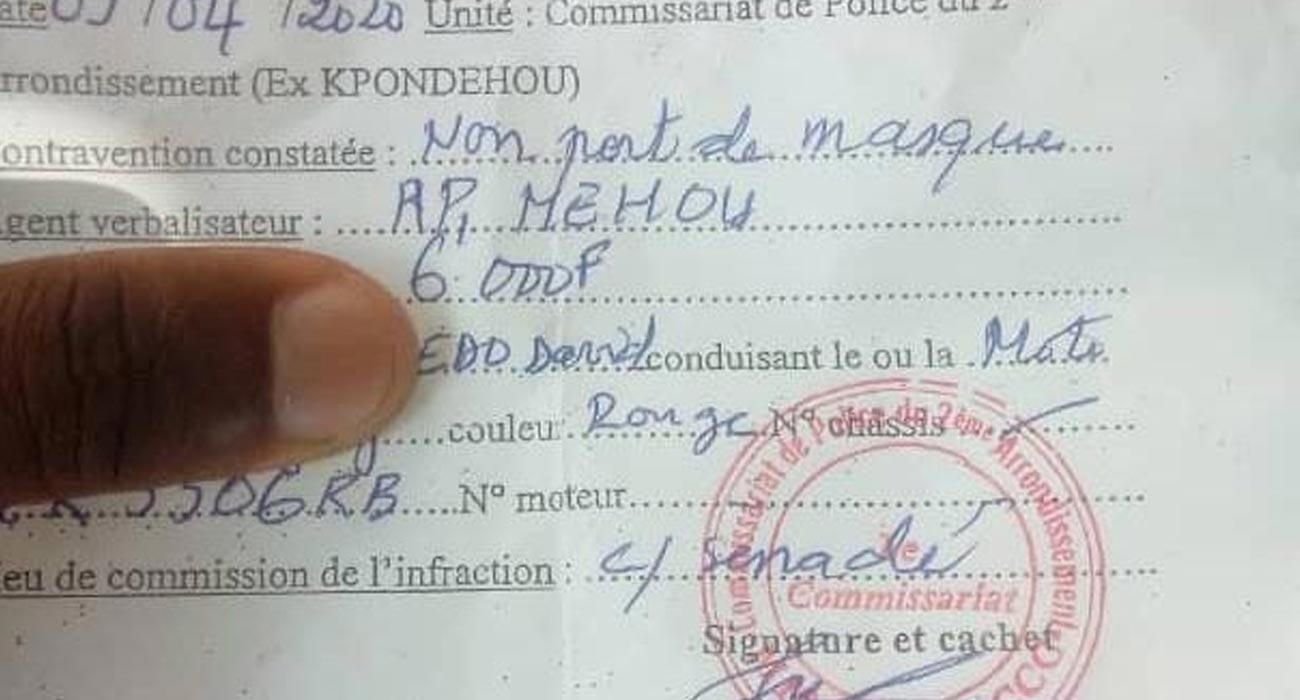 ate 09/04/2020 Unité : Commissariat de Police du 2
rrondissement (Ex KPONDEHOU)
ontravention constatée : Non port de masque
gent verbalisateur : AP, MEHOU
6.000F
EDD David conduisant le ou la Moto
couleur Rouge N° chassis
5506RB N° moteur
eu de commission de l'infraction : C/ Sènadé
Commissariat de Police du 2ème Arrondissement
Le
Commissariat
Signature et cachet